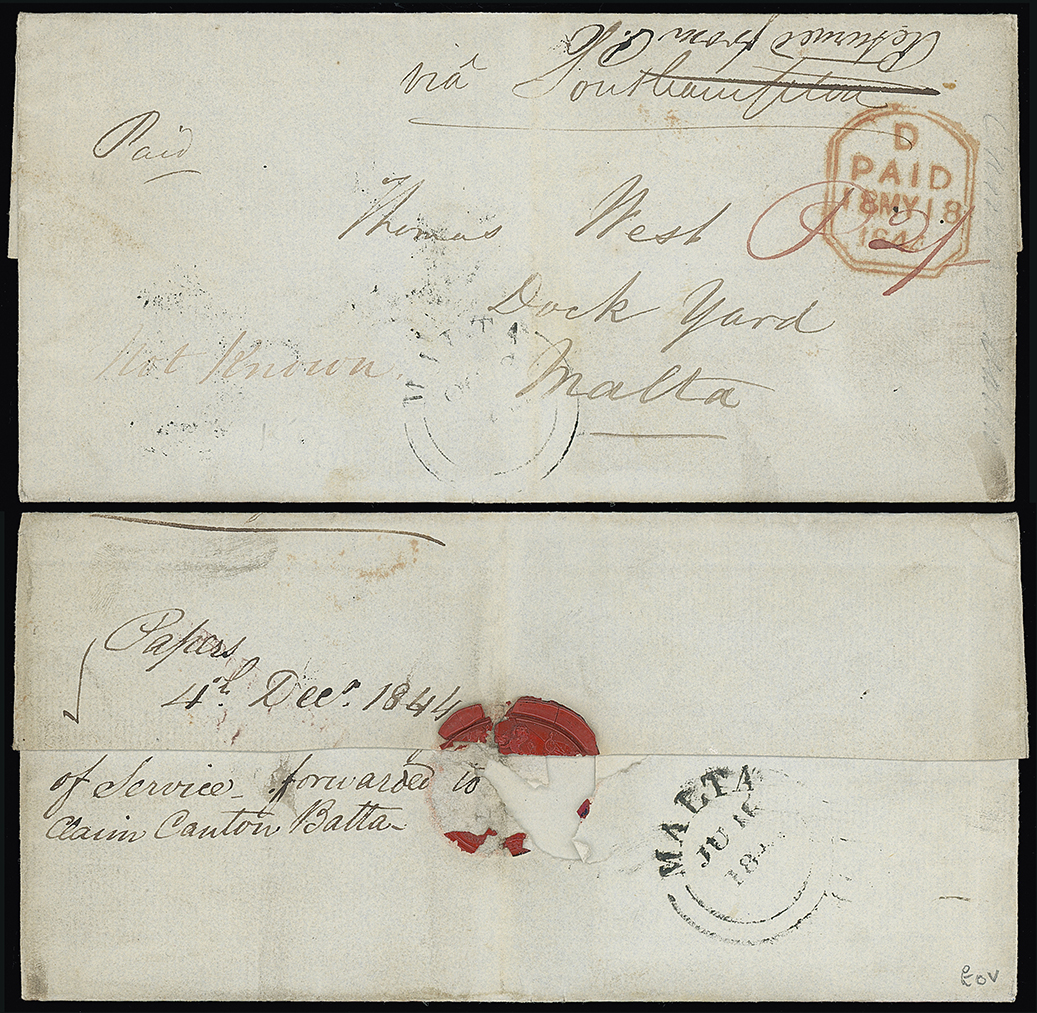 Returned from
viâ Southampton
Paid
D
PAID
18MY18
184
Thomas West
Dock Yard
Malta
Not Known
MALTA
Papers
4th Decr. 1844
of Service_ forwarded to
Claim Canton Batta_
MALTA
JU 16
18